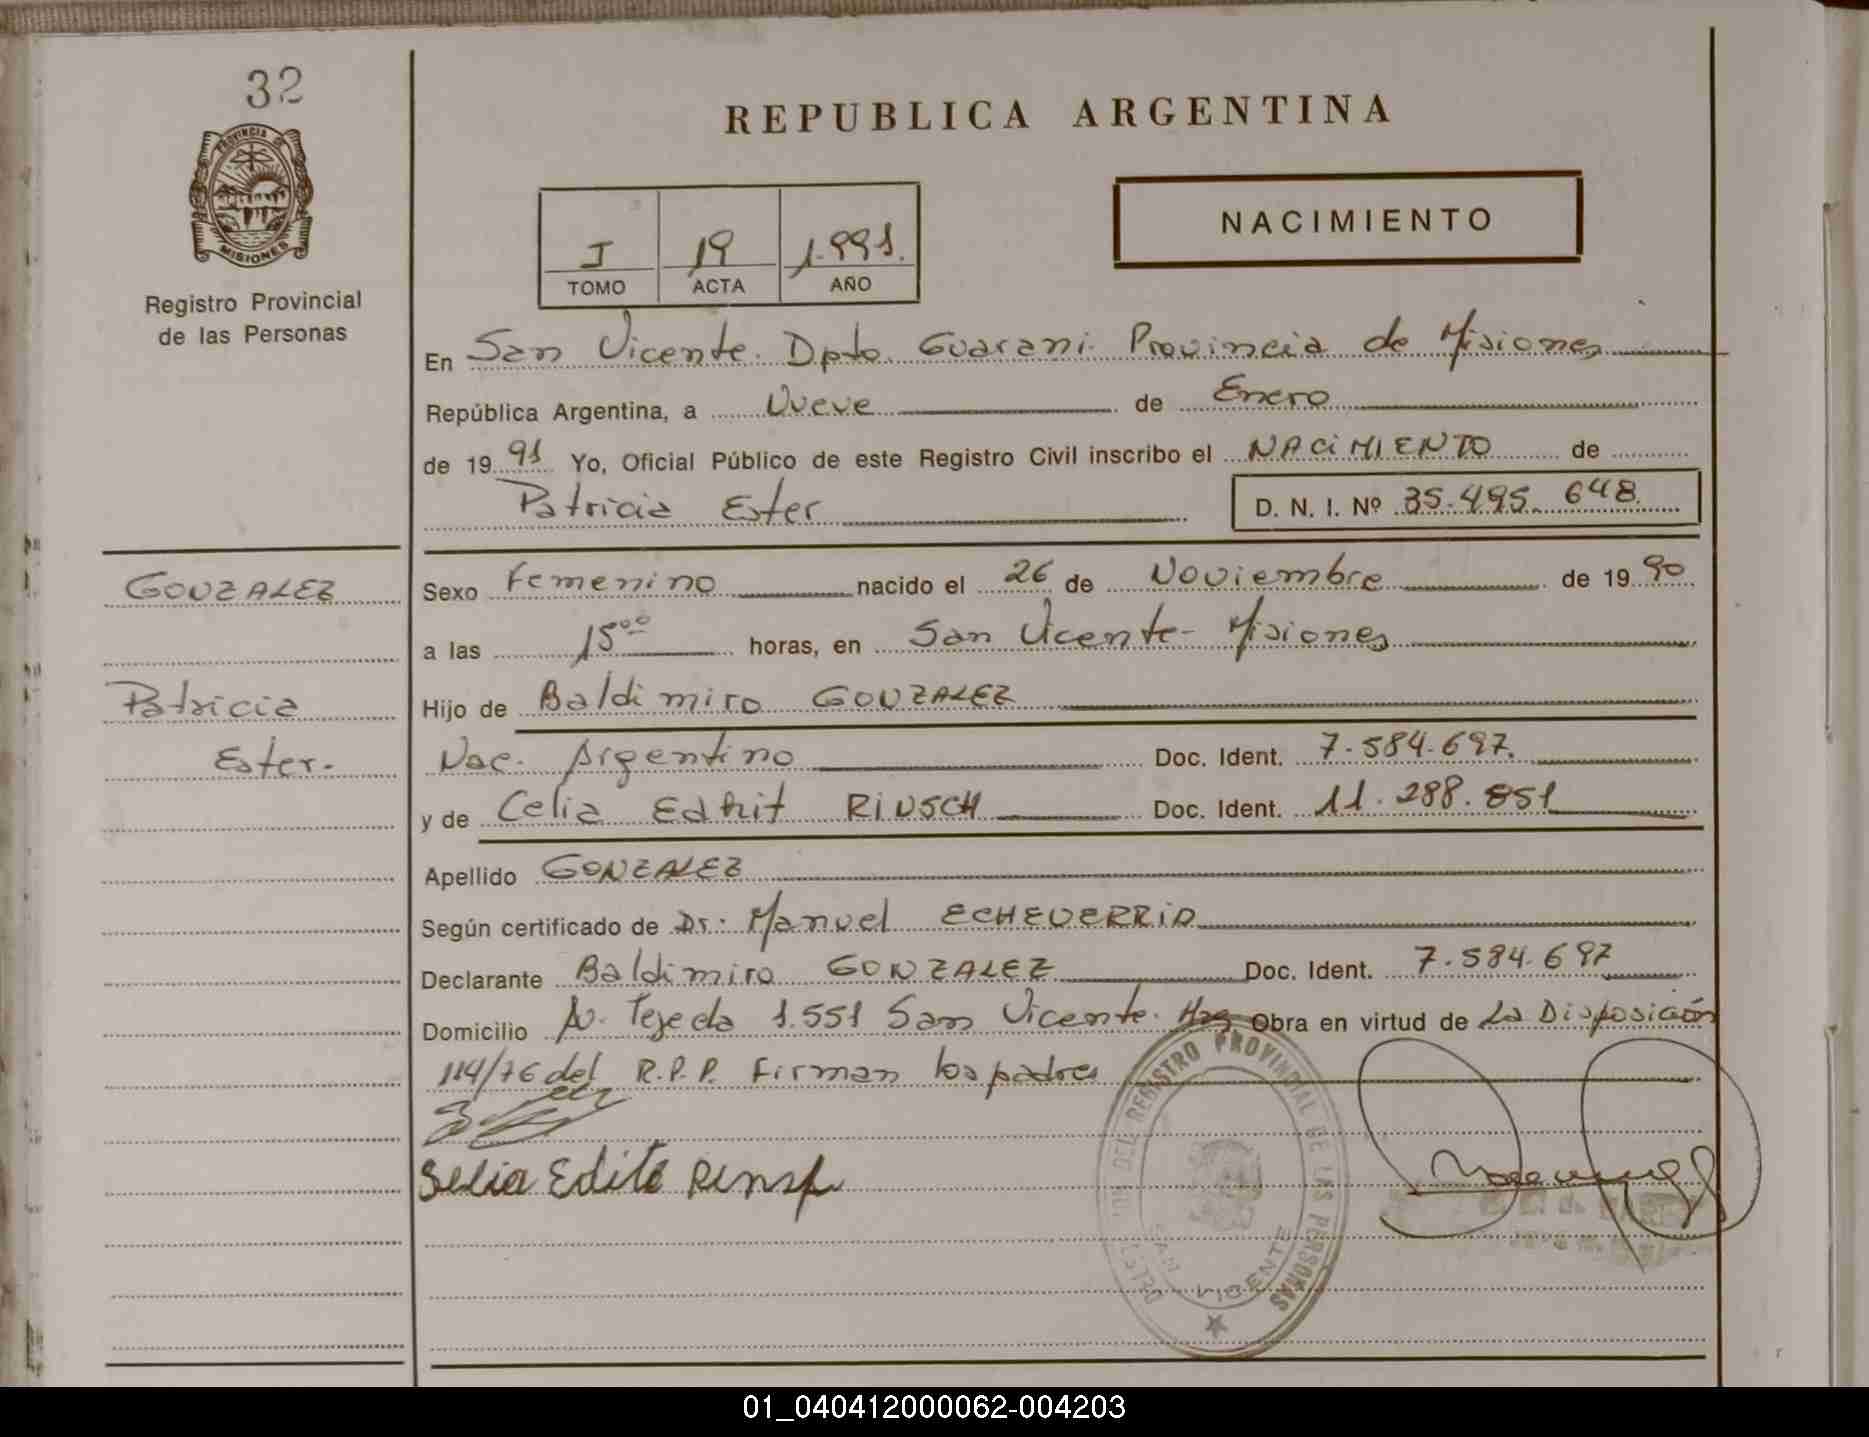 32
PROVINCIA DE
MISIONES
Registro Provincial
de las Personas
GONZALEZ
Patricia
Ester.
REPUBLICA ARGENTINA
I 19 1.991.
TOMO ACTA AÑO
NACIMIENTO
En San Vicente. Dpto. Guarani. Provincia de Misiones
República Argentina, a Nueve de Enero
de 1991 Yo, Oficial Público de este Registro Civil inscribo el NACIMIENTO de
Patricia Ester D. N. I. Nº 35.495.648.
Sexo Femenino nacido el 26 de Noviembre de 1990
a las 15⁰⁰ horas, en San Vicente - Misiones
Hijo de Baldimiro GONZALEZ
Nac. Argentino Doc. Ident. 7.584.697.
y de Celia Edhit RINSCH Doc. Ident. 11.288.851
Apellido GONZALEZ
Según certificado de Dr. Manuel ECHEVERRIA
Declarante Baldimiro GONZALEZ Doc. Ident. 7.584.697
Domicilio Av. Tejeda 1.551 San Vicente. Obra en virtud de La Disposición
114/76 del R.P.P. Firman los padres
Selia Edite
DEL REGISTRO PROVINCIAL DE LAS PERSONAS
SAN VICENTE
01_040412000062-004203